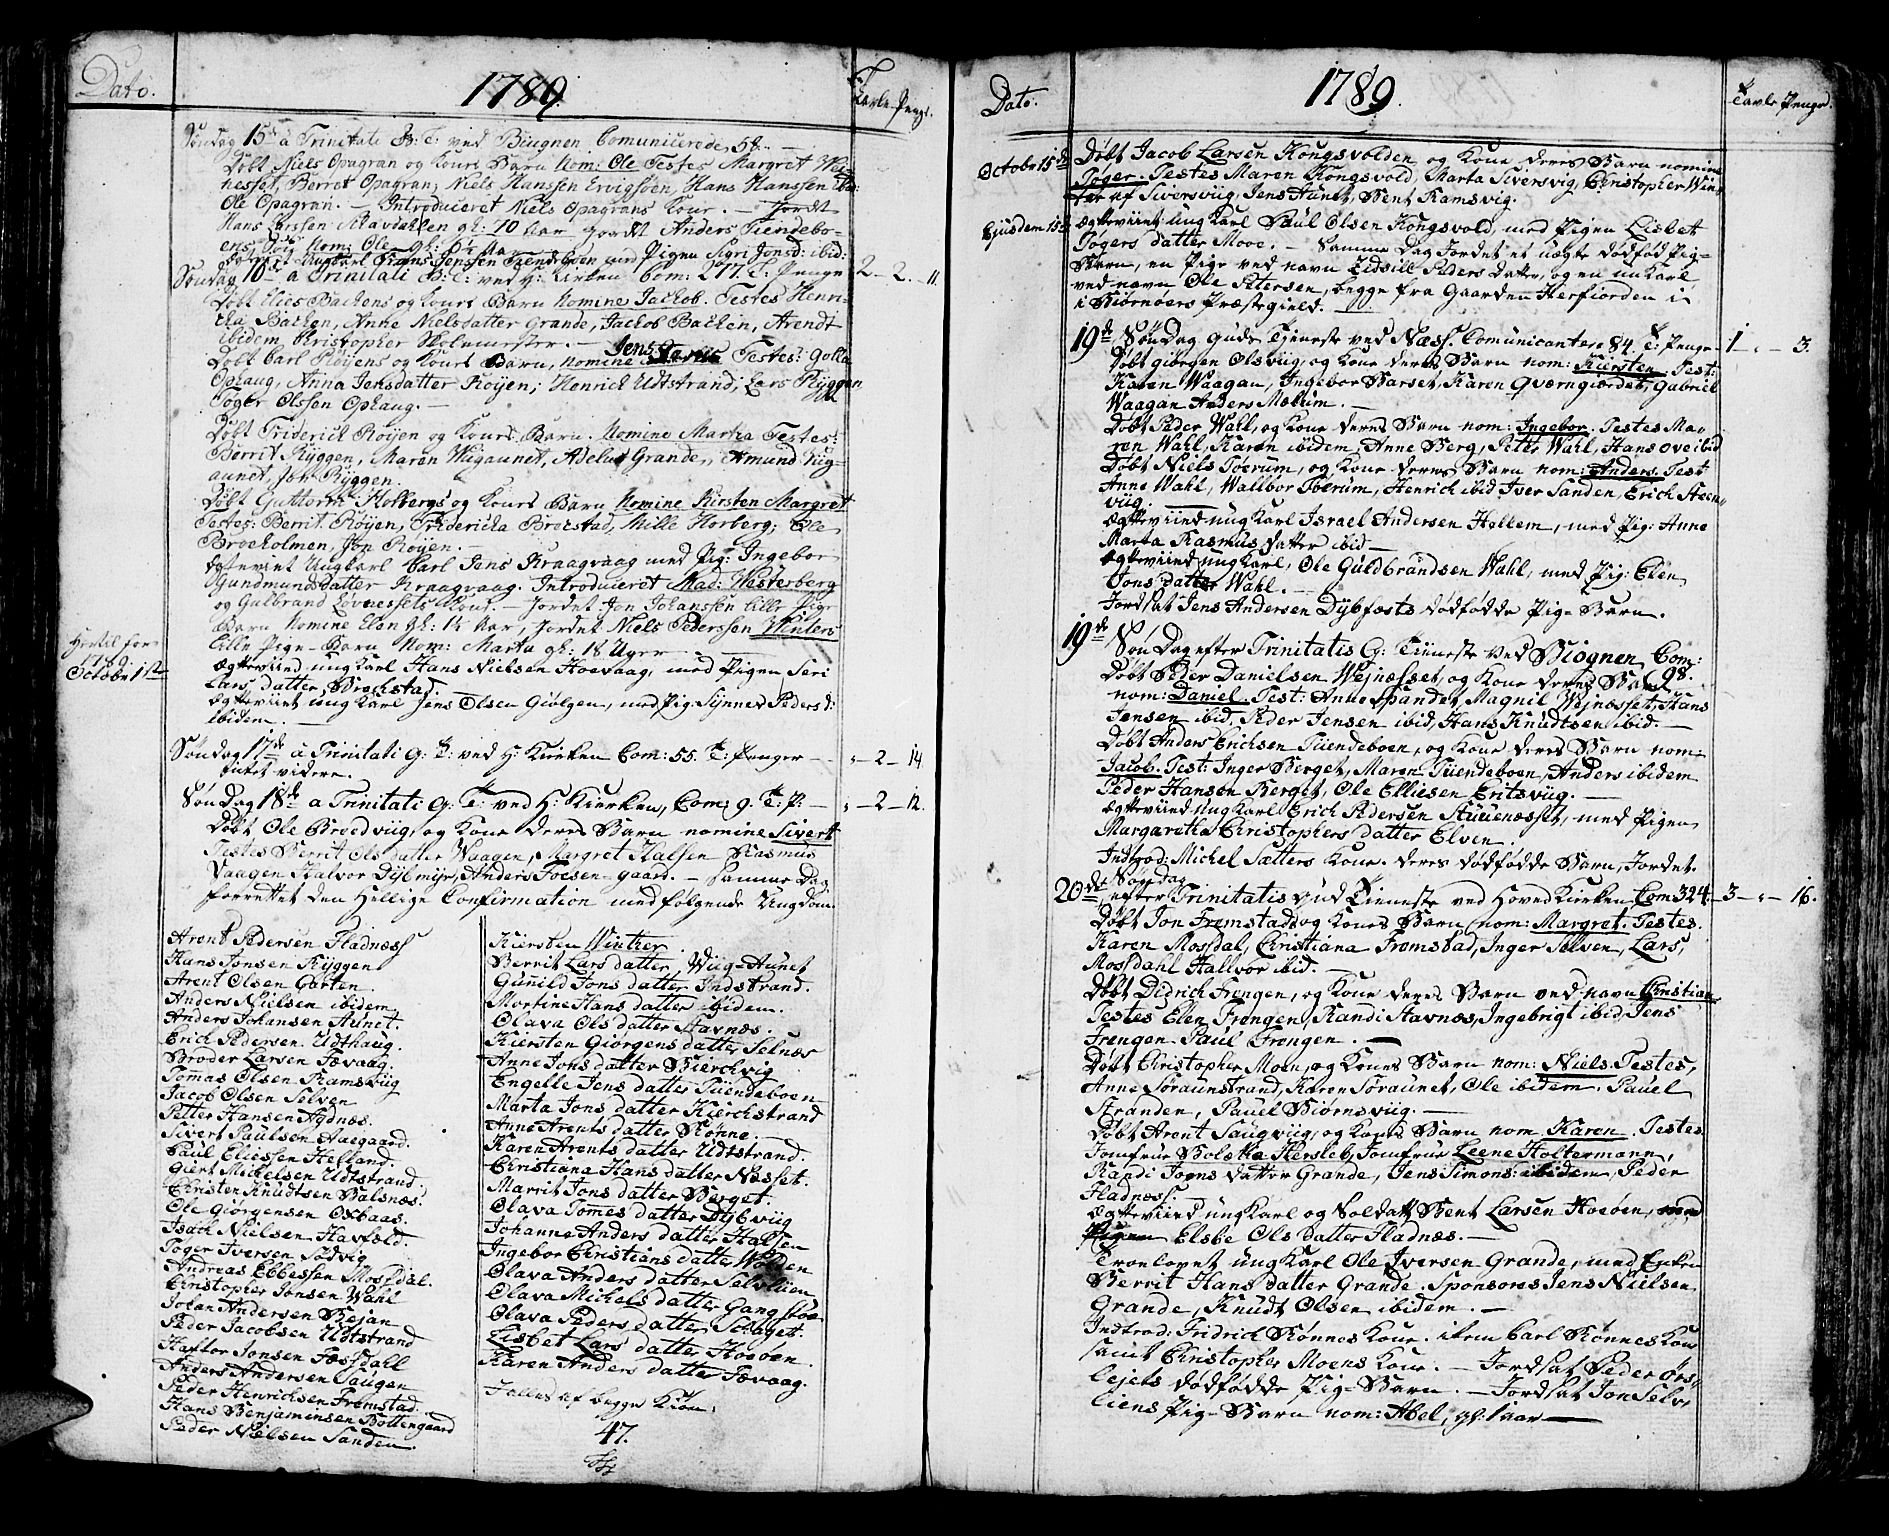 Dato.
1789.
Tavle-Penge.
Søndag 15de à Trinitate G: T: ved Biugnen Comunicerede 58. —
Døbt Niels Opagran og Kones Barn Nom: Ole Testes Margret Wei-
nesset, Berret Opagran, Niels Hanssen Ervigsøen, Hans Hanssen ibid:
Ole Opagran. — Introduceret Niels Opagrans Kone. — Jordet
Hans Larssen gl: 70 Aar Jordet Anders Tiendebo-
ens Nom: Ole gl:
Ungkarl Frans Jenssen Tiendeboen med Pigen Sigri Jonsd: ibid:
Søndag 16de à Trinitati G: T: ved H: Kirken Com: 277. T: Penge 2 - 2 - 11.
Døbt Elies Backens og Kones Barn Nomine Jackob. Testes Henri-
cka Backen, Anne Nielsdatter Grande, Jackob Backen, Arendt
ibidem Christopher Skolemester. —
Døbt Carl Røyens og Kones Barn, nomine Jens Testes: Golla
Ophaug, Anna Jensdatter Røyen, Henrick Udtstrand, Lars Ryggen
Toger Olssen Ophaug. —
Døbt Friderick Røyen og Kones Barn. Nomine Martha Testes:
Berrit Ryggen, Maren Wigaunet, Adelus Grande, Amund Wig-
aunet, Jon Ryggen.
Døbt Guttorm Hofbergs og Kones Barn Nomine Kirsten Margret
Testes: Berrit Røyen, Fridericka Brockstad, Mille Horberg, Ole
Brockholmen, Jon Røyen. —
Egteviet Ungkarl Carl Jens Kraagvaag med Pig: Ingebor
Gundmundsdatter Kraagvaag. Introduceret Mad: Westerberg
og Gulbrand Løvnessets Kone. — Jordet Jon Johanssen lille Pige
Barn Nomine Elen gl: 1½ Aar, Jordet Niels Pederssen Winters
lille Pige-Barn Nom: Marta gl: 18 Uger
October 1ste
Ægteviind ungkarl Hans Nielsen Hoevaag, med Pigen Seri
Lars datter Brockstad
Ægteviet ungkarl Jens Olsen Giølgen, med Pig: Synnev Peders d:
ibidem. —
Søndag 17de à Trinitati G: T: ved H: Kirken Com: 55. T: Penger - - „ - 2 - 14
intet videre.
Søndag 18de a Trinitati G: T: ved H: Kierken, Com: 9. T: P: — „ - 2 - 12.
Døbt Ole Broedviig, og Kone deres Barn nomine Sivert
Testes Berrit Ols datter Vaagen, Margret Halsen Rasmus
Vaagen Halvor Dybmyr, Anders Foesen-gaard. — Samme Dag
forrettet den Hellige Confirmation med følgende Ungdom.
Arent Pedersen Fladnæss
Hans Jonsen Ryggen
Arent Olsen Garten
Anders Nielsen ibidem
Anders Johansen Aunet.
Erich Pedersen Udthaug.
Broder Larsen Tævaag.
Tomas Olsen Ramsviig
Jacob Olsen Selven
Petter Hansen Agdnæs.
Sivert Paulsen Aaegaard.
Paul Eliesen Helland.
Giert Mickelsen Udtstrand.
Christen Knudtsen Balsnæs.
Ole Giørgensen Oxbaas.
Isach Nielsen Havfold.
Toger Iversen Sødvig
Andreas Ebbessen Mossdal.
Christopher Jonsen Wahl
Johan Andersen Bejan
Peder Jacobsen Udtstrand
Hafftor Jonsen Fæssdahl
Anders Andersen Saugen
Peder Henrichsen Fremstad.
Hans Benjaminsen Bottengaard
Peder Nielsen Sanden
Kiersten Winther.
Berrit Lars datter Wiig-Aunet
Gunild Jons datter Indstrand.
Martine Hans datter ibidem.
Olava Ols datter Havnæs.
Kiersten Giørgens datter Selnæs
Anne Jons datter Bierchvig
Engelle Jens datter Tiiendeboen
Marta Jons datter Kierchstrand
Anne Arents datter Rønne.
Karen Arents datter Udtstrand.
Christiana Hans datter Næsset.
Marrit Jons datter Berget.
Olava Tomes datter Dybviig
Johanne Anders datter Halsen
Ingebor Christians datter Wolden
Olava Anders datter Selvliien
Olava Michels datter Gangstøe
Olava Peders datter Schaget.
Lisbet Lars datter Hosøen.
Karen Anders datter Tævaag.
Tallens af begge Kiøn.
47.
Dato.
1789.
Tavle Penge.
October 15de
Døbt Jacob Larsen Kongsvolden og Kone deres Barn nomine
Toger. Testes Maren Kongsvold, Marta Siversvig, Christopher Win-
ter af Siversviig, Jens Aunet, Bent Ramsvig.
Ejusdem 15de
Ægteviiet ung Karl Paul Olsen Kongsvold, med Pigen Lisbet
Togers datter Mooe. — Samme Dag Jordet et uægte dødfød Pig-
Barn, en Pige ved navn Zidsill Peders datter, og en un Karl
ved navn Ole Petersen, begge fra Gaarden Herfiorden i
i Biørnøers Præstegield.
19de Søndag Guds Tieneste ved Næss. Comunicantere 84. T: Penge - 1 - „ - 3.
Døbt Giørgen Olsviig, og Kone deres Barn nom: Kiersten. Test:
Karen Waagan, Ingebor Barset, Karen Qværngiærdet, Gabriel
Waagan Anders Mælum. —
Døbt Peder Wahl, og Kone deres Barn nom: Ingebor. Testes Ma-
ren Wahl, Karen ibidem, Anne Berg, Peter Wahl, Hans Ove ibid
Døbt Niels Tøerum, og Kone deres Barn nom: Anders. Test
Anne Wahl, Wallbor Tøerum, Henrich ibid Iver Sanden, Erich Steen-
viig. —
Ægteviind ungkarl Israel Andersen Hollem, med Pig: Anne
Marta Rasmus datter ibid —
Ægteviind ungkarl, Ole Guldbrandsen Wahl, med Pig: Elen
Jons datter Wahl. —
Jordsat Jens Andersen Dybfæsts dødfødde Pig-Barn.
19de Søn Dag efter Trinitatis G: Tieneste ved Biognen Com:
98.
Døbt Peder Danielsen Wejnæsset, og Kone deres Barn
nom: Daniel. Test: Anne Spandet, Magnil Wejnæsset, Hans
Jensen ibid, Peder Jensen ibid, Hans Knudtsen ibid. —
Døbt Anders Erichsen Tiiendeboen, og Kone deres Barn nom:
Jacob. Test: Inger Berget, Maren Tiiendeboen, Anders ibidem
Peder Hansen Berget, Ole Elliesen Eritsviig. —
Ægteviind Ungkarl Erich Pedersen Stüüenæsset, med Pigen
Margaretha Christophers datter Elven.
Indtrod: Michel Sætters Kone. deres dødfødde Barn, Jordet.
20de Søndag
efter Trinitatis Gud Tieneste ved Hoved Kierken Com 324 - 3 - „ - 16.
Døbt Jon Fremstad og Kones Barn nom: Margret. Testes.
Karen Mossdal, Christiana Fremstad, Inger Selven, Lars
Mossdahl Hallvor ibid. —
Døbt Didrich Frengen, og Kone deres Barn ved navn Christian
Testes Elen Frengen, Randi Havnæs, Ingebrigt ibid, Jens
Frengen Paul Frengen. —
Døbt Christopher Moen, og Kones Barn nom: Niels. Testes,
Anne Søraunstrand, Karen Søraunet, Ole ibidem. Pauel
Stranden, Pauel Biørnsviig. —
Døbt Arent Saugviig, og Kones Barn nom Karen. Testes
Jomfrue Boletha Hersleb, Jomfrue Leene Holtermann,
Randi Joens dattor Grande, Jens Simons: ibidem, Peder
Fladnæss.
Ægteviind ungkarl og Soldatt Bent Larsen Hosøen, med
Pigen Elsbe Ols datter Fladnæs. —
Troelovet ungkarl Ole Iversen Grande, med Enken
Berrit Hans datter Grande. Sponsores Jens Nielsen
Grande, Knudt Olsen ibidem. —
Indtrod: Fridrich Rønnes Kone. item Carl Rønnes Kone
samt Christopher Moens Kone. — Jordsat Peder Ørs-
lejets dødfødde Pig-Barn. — Jordsat Jon Selv-
liens Pig-Barn nom: Abel, gl: 1 aar —